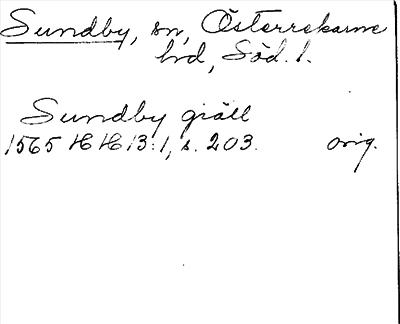 Sundby, sn, Österrekarne
hd, Söd. l.
Sundby giäll
1565 HH 13:1, s. 203. orig.